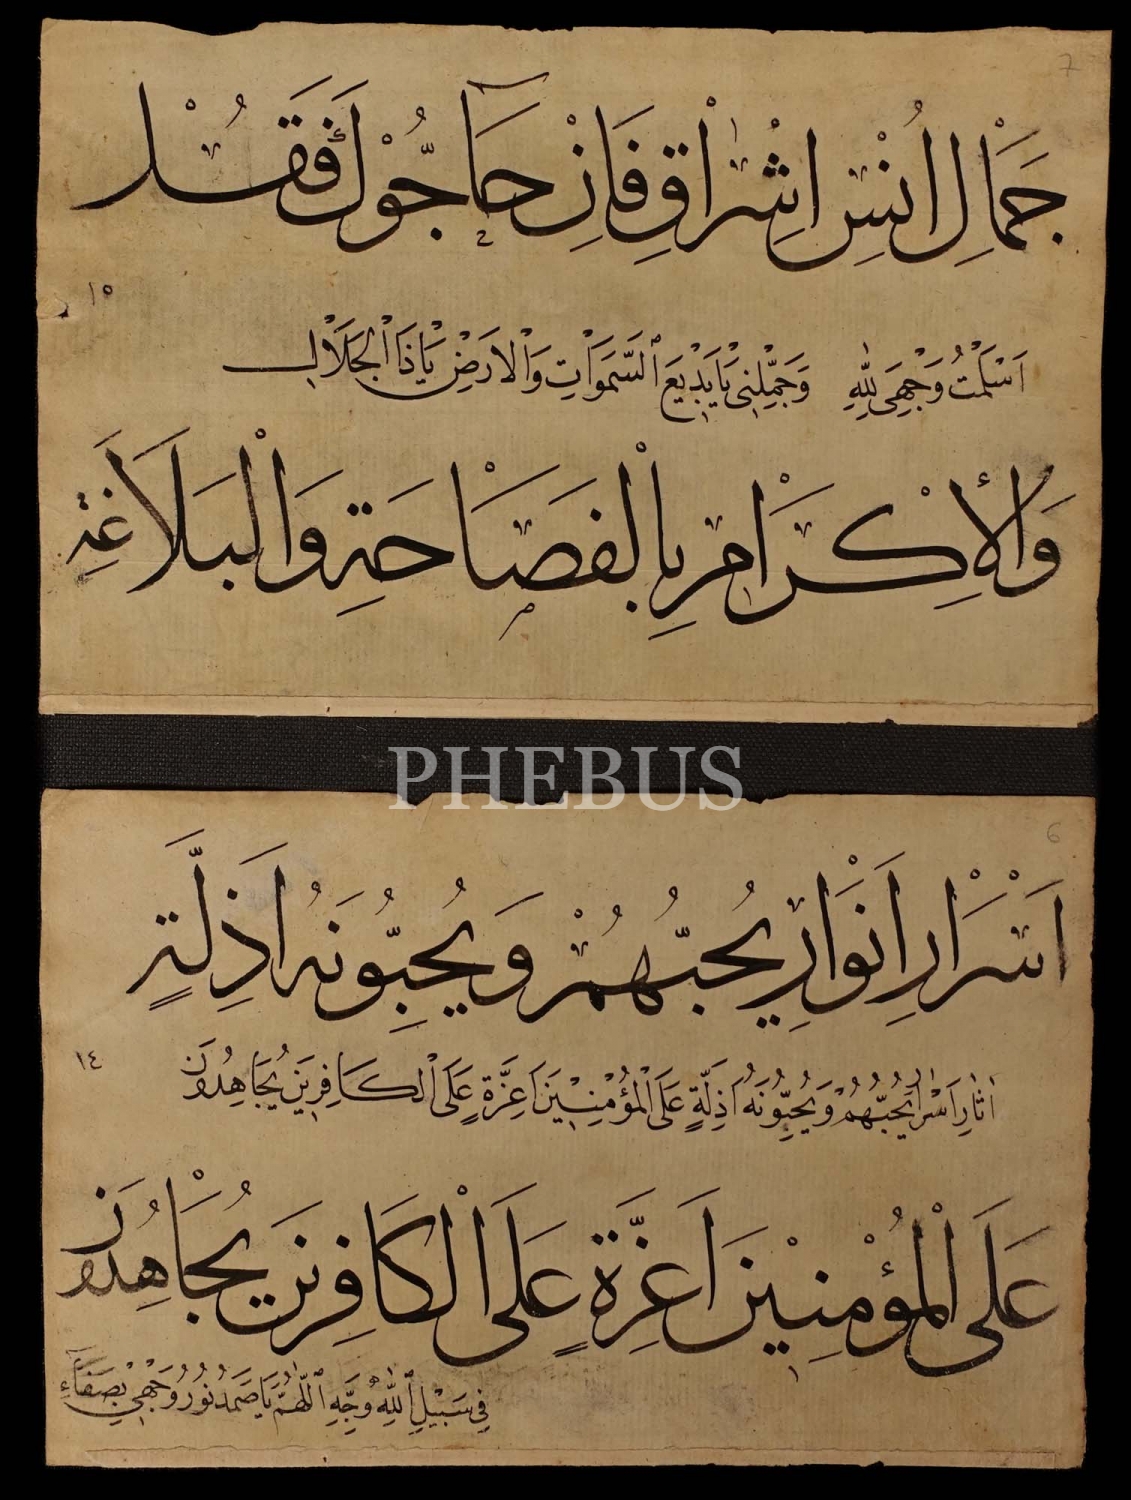 7
جَمَالِ اُنْسِ اِشْرَاقِ فَاِنْ حَآجُّوْكَ فَقُلْ
١٥
اَسْلَمْتُ وَجْهِىَ لِلّٰهِ وَجَمِّلْنِى يَا بَدِيْعَ السَّمٰوَاتِ وَالْاَرْضِ يَاذَا الْجَلَالِ
وَالْاِكْرَامِ بِالْفَصَاحَةِ وَالْبَلَاغَةِ
PHEBUS
6
اَسْرَارِ اَنْوَارِ يُحِبُّهُمْ وَيُحِبُّونَهُ اَذِلَّةٍ
١٤
اٰثَارِ اَسْرَارِ يُحِبُّهُمْ وَيُحِبُّونَهُ اَذِلَّةٍ عَلَى الْمُؤْمِنِيْنَ اَعِزَّةٍ عَلَى الْكَافِرِيْنَ يُجَاهِدُونَ
عَلَى الْمُؤْمِنِيْنَ اَعِزَّةٍ عَلَى الْكَافِرِيْنَ يُجَاهِدُونَ
فِى سَبِيْلِ اللّٰهِ وَجِّهِ اللّٰهُمَّ يَا صَمَدُ نُوْرُ وَجْهِى بِصَفَآءِ